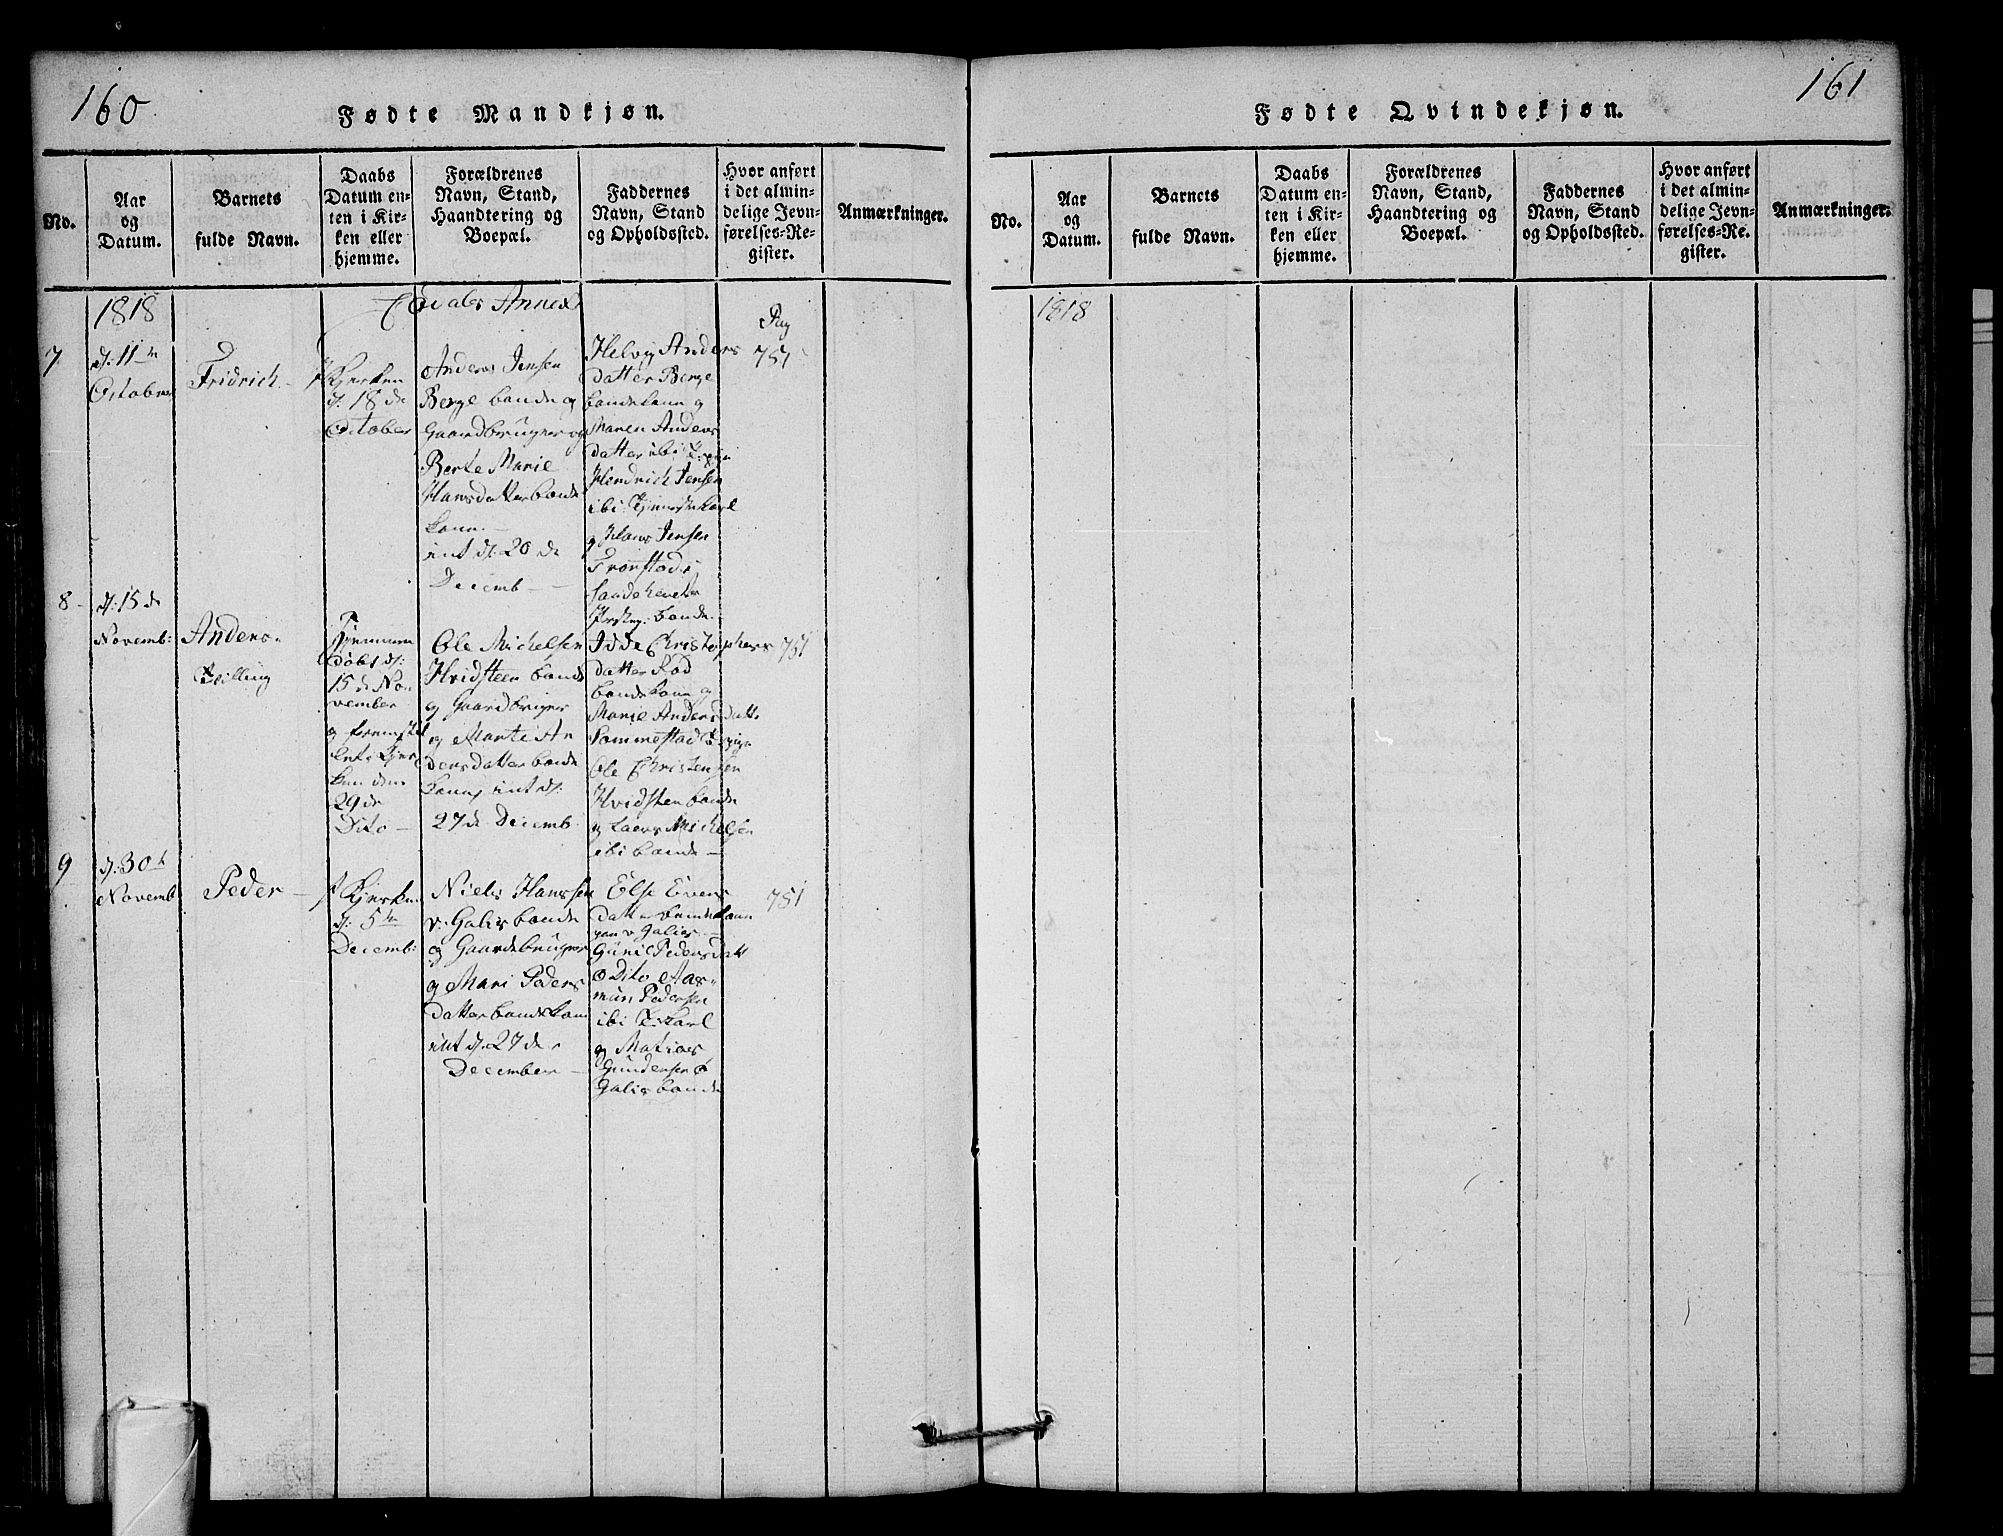 160
Fødte Mandkjøn.
No.
Aar
og
Datum.
Barnets
fulde Navn.
Daabs
Datum en-
ten i Kir-
ken eller
hjemme.
Forældrenes
Navn, Stand,
Haandtering og
Boepæl.
Faddernes
Navn, Stand
og Opholdssted.
Hvor anført
i det almin-
delige Jevn-
førelses-Re-
gister.
Anmærkninger.
1818
Annex
Pag
7
d: 11te
October
Fridrich
Kjerken
d. 18 de
October
Anders Jensen
Berge bonde og
Gaardbruger og
Berte Marie
Hansdatter bonde
kone
int d. 20 de
Decemb
Helvig Anders
datter Berge
bondekone og
Maren Anders
datter ibi
Hendrich Jensen
ibi
og Hans Jensen
Trønstad
bonde
751
8
d: 15 de
Novemb:
Anders
Tvilling
Hjemme
døbt d:
15 de No-
vember
og fremstil
let i Kjer
ken den
29 de
Dito
Ole Michelsen
Hvidsteen bonde
og Gaardbruger
og Marte An
dersdatter bonde
kone, int d:
27 de Decemb
Idde Christophers
datter Rød
bondekone og
Marie Andersdatt
Sommestad
Ole Christensen
Hvidsten bonde
og Laers Michelsen
ibi bonde
751
9
d: 30te
Novemb
Peder
Kjerken
d. 5te
Decemb:
Niels Hanssen
v: Galis bonde
og Gaardebruger
og Mari Peders
datter bondekone
int d. 27 de
December
Else Evens
datter bondekone
v Galis
Guril Pedersdatt
Dito Aas-
mun Pedersen
ibi karl
og Matias
Gundersen
Galis bonde
751
161
Fødte Qvindekjøn.
No.
Aar
og
Datum.
Barnets
fulde Navn.
Daabs
Datum en-
ten i Kir-
ken eller
hjemme.
Forældrenes
Navn, Stand,
Haandtering og
Boepæl.
Faddernes
Navn, Stand
og Opholdssted.
Hvor anført
i det almin-
delige Jevn-
førelses-Re-
gister.
Anmærkninger.
1818